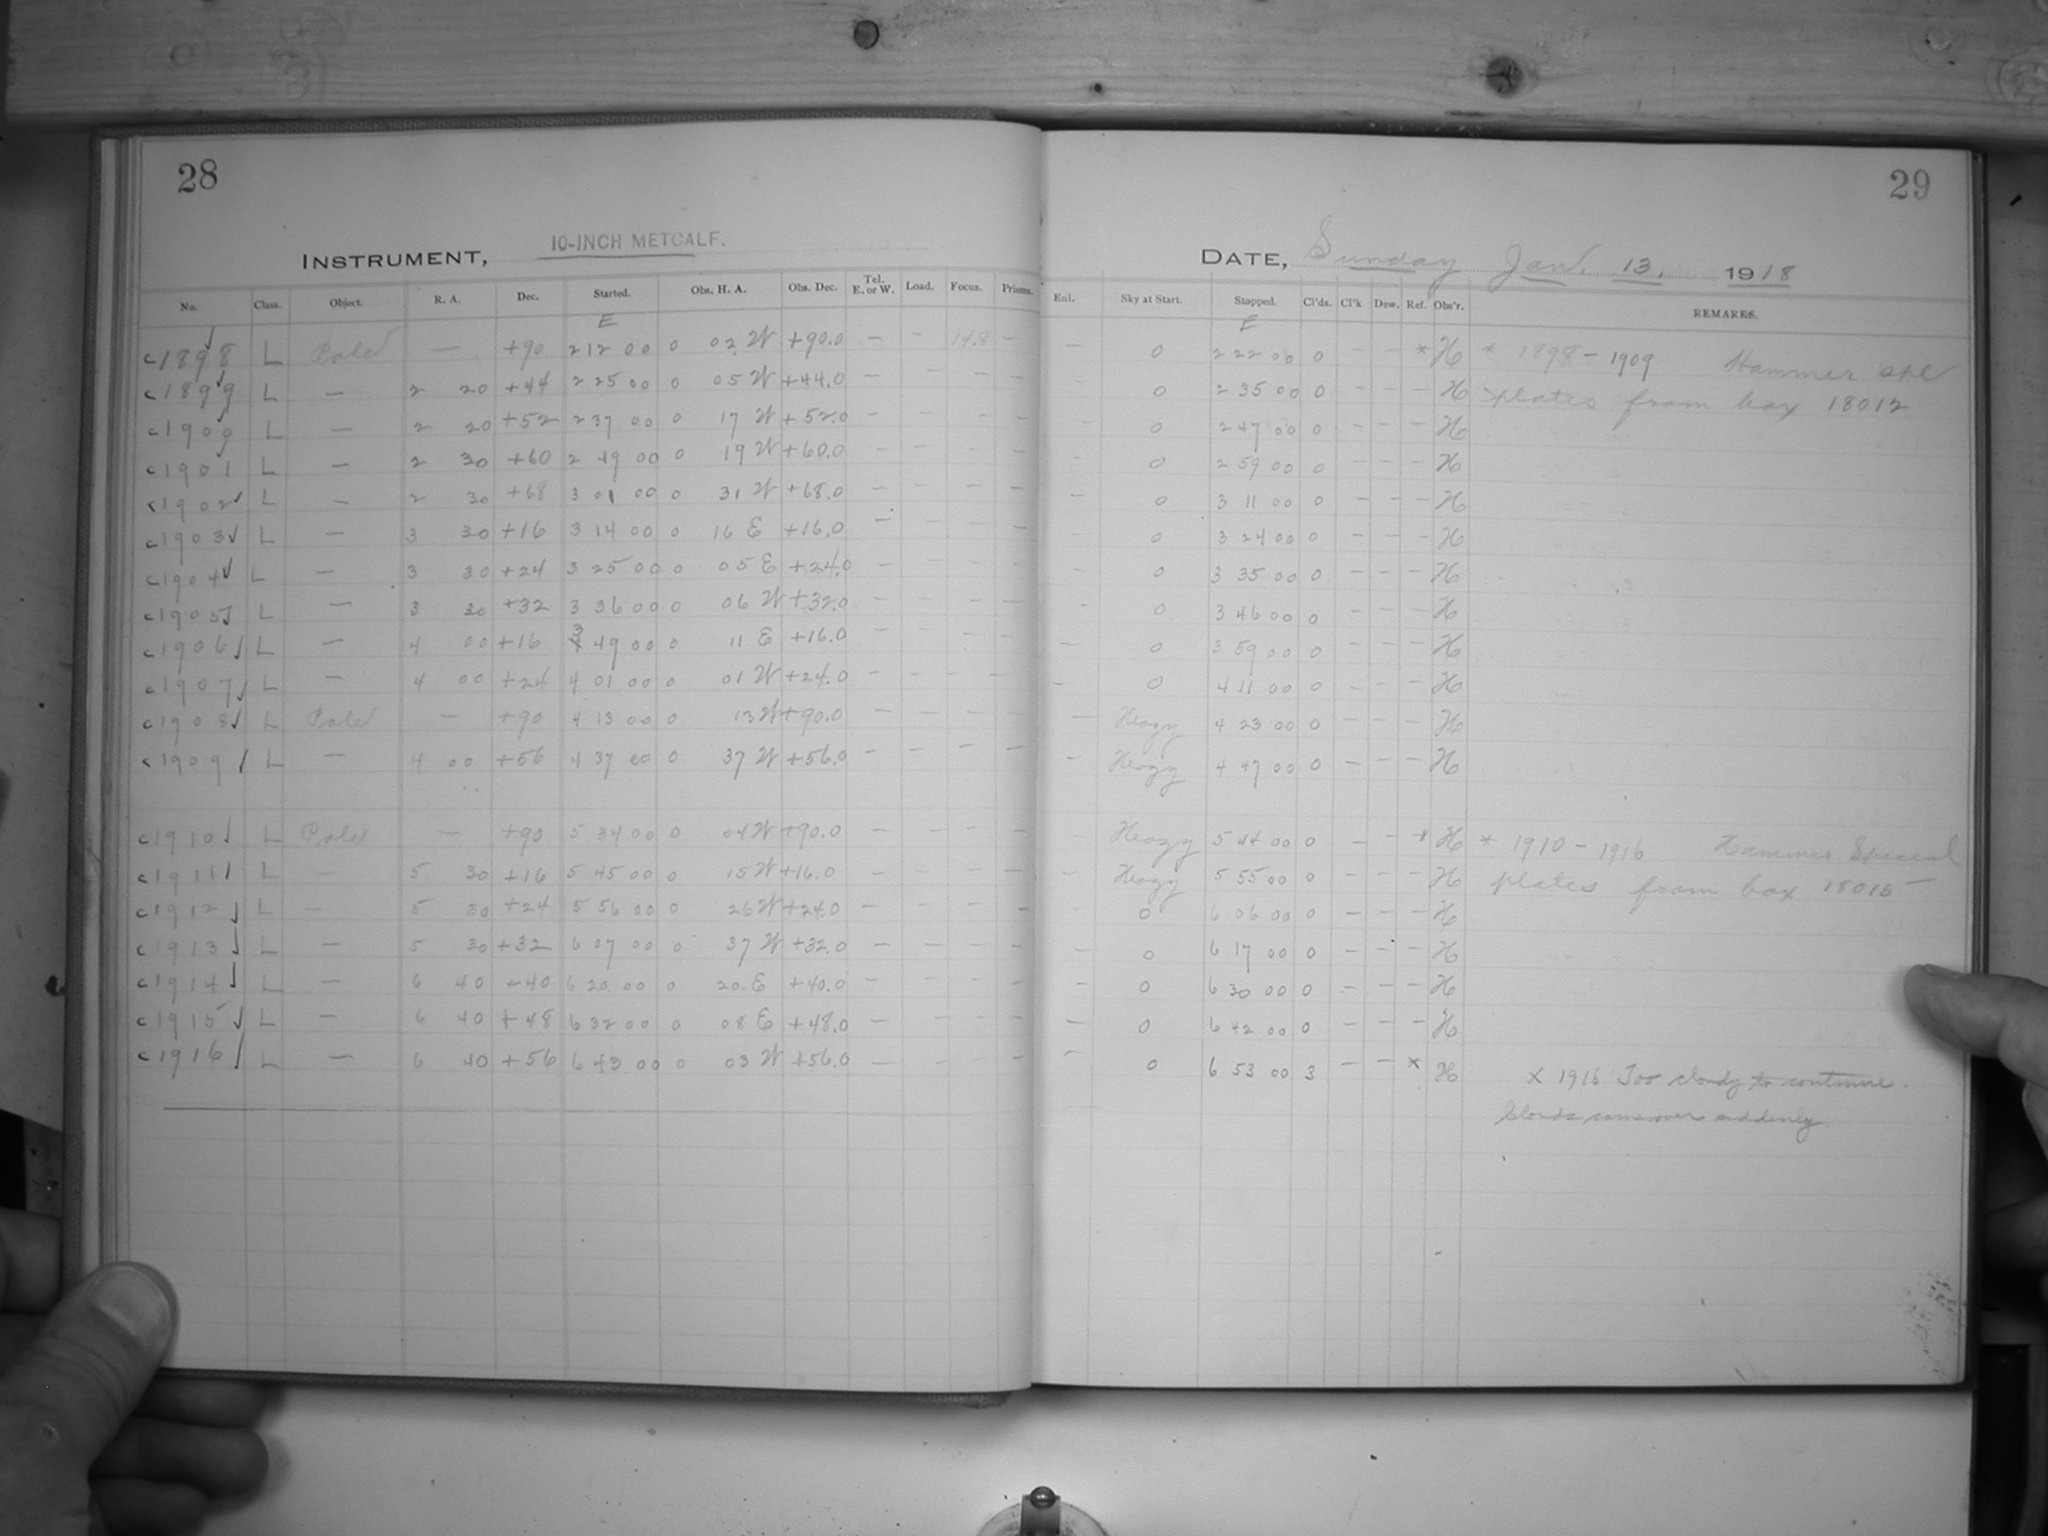 28
INSTRUMENT, 10-INCH METCALF.
No. Class. Object. R. A. Dec. Started. Obs. H. A. Obs. Dec. Tel. E. or W. Load. Focus. Prisms.
E
c1898 L Pole — +90 2 12 00 0 02 W +90.0 — — 14.8 —
c1899 L — 2 20 +44 2 25 00 0 05 W +44.0 — — — —
c1900 L — 2 20 +52 2 37 00 0 17 W +52.0 — — — —
c1901 L — 2 30 +60 2 49 00 0 19 W +60.0 — — — —
c1902 L — 2 30 +68 3 01 00 0 31 W +68.0 — — — —
c1903 L — 3 30 +16 3 14 00 0 16 E +16.0 — — — —
c1904 L — 3 30 +24 3 25 00 0 05 E +24.0 — — — —
c1905 L — 3 30 +32 3 36 00 0 06 W +32.0 — — — —
c1906 L — 4 00 +16 3 49 00 0 11 E +16.0 — — — —
c1907 L — 4 00 +24 4 01 00 0 01 W +24.0 — — — —
c1908 L Pole — +90 4 13 00 0 13 W +90.0 — — — —
c1909 L — 4 00 +56 4 37 00 0 37 W +56.0 — — — —
c1910 L Pole — +90 5 34 00 0 04 W +90.0 — — — —
c1911 L — 5 30 +16 5 45 00 0 15 W +16.0 — — — —
c1912 L — 5 30 +24 5 56 00 0 26 W +24.0 — — — —
c1913 L — 5 30 +32 6 07 00 0 37 W +32.0 — — — —
c1914 L — 6 40 +40 6 20 00 0 20 E +40.0 — — — —
c1915 L — 6 40 +48 6 32 00 0 08 E +48.0 — — — —
c1916 L — 6 40 +56 6 43 00 0 03 W +56.0 — — — —
29
DATE, Sunday Jan. 13. 1918
Enl. Sky at Start. Stopped. Cl'ds. Cl'k Dew. Ref. Obs'r. REMARKS.
E
— 0 2 22 00 0 — — * H * 1898 - 1909 Hammer spl
— 0 2 35 00 0 — — — H plates from box 18012
— 0 2 47 00 0 — — — H
— 0 2 59 00 0 — — — H
— 0 3 11 00 0 — — — H
— 0 3 24 00 0 — — — H
— 0 3 35 00 0 — — — H
— 0 3 46 00 0 — — — H
— 0 3 59 00 0 — — — H
— 0 4 11 00 0 — — — H
— Heazy 4 23 00 0 — — — H
— Heazy 4 47 00 0 — — — H
Heazy 5 44 00 0 — — * H * 1910 - 1916 Hammer Special
— Heazy 5 55 00 0 — — — H plates from box 18015
— 0 6 06 00 0 — — — H
— 0 6 17 00 0 — — — H
— 0 6 30 00 0 — — — H
— 0 6 42 00 0 — — — H
— 0 6 53 00 3 — — * H x 1916 Too cloudy to continue.
Clouds came over suddenly.